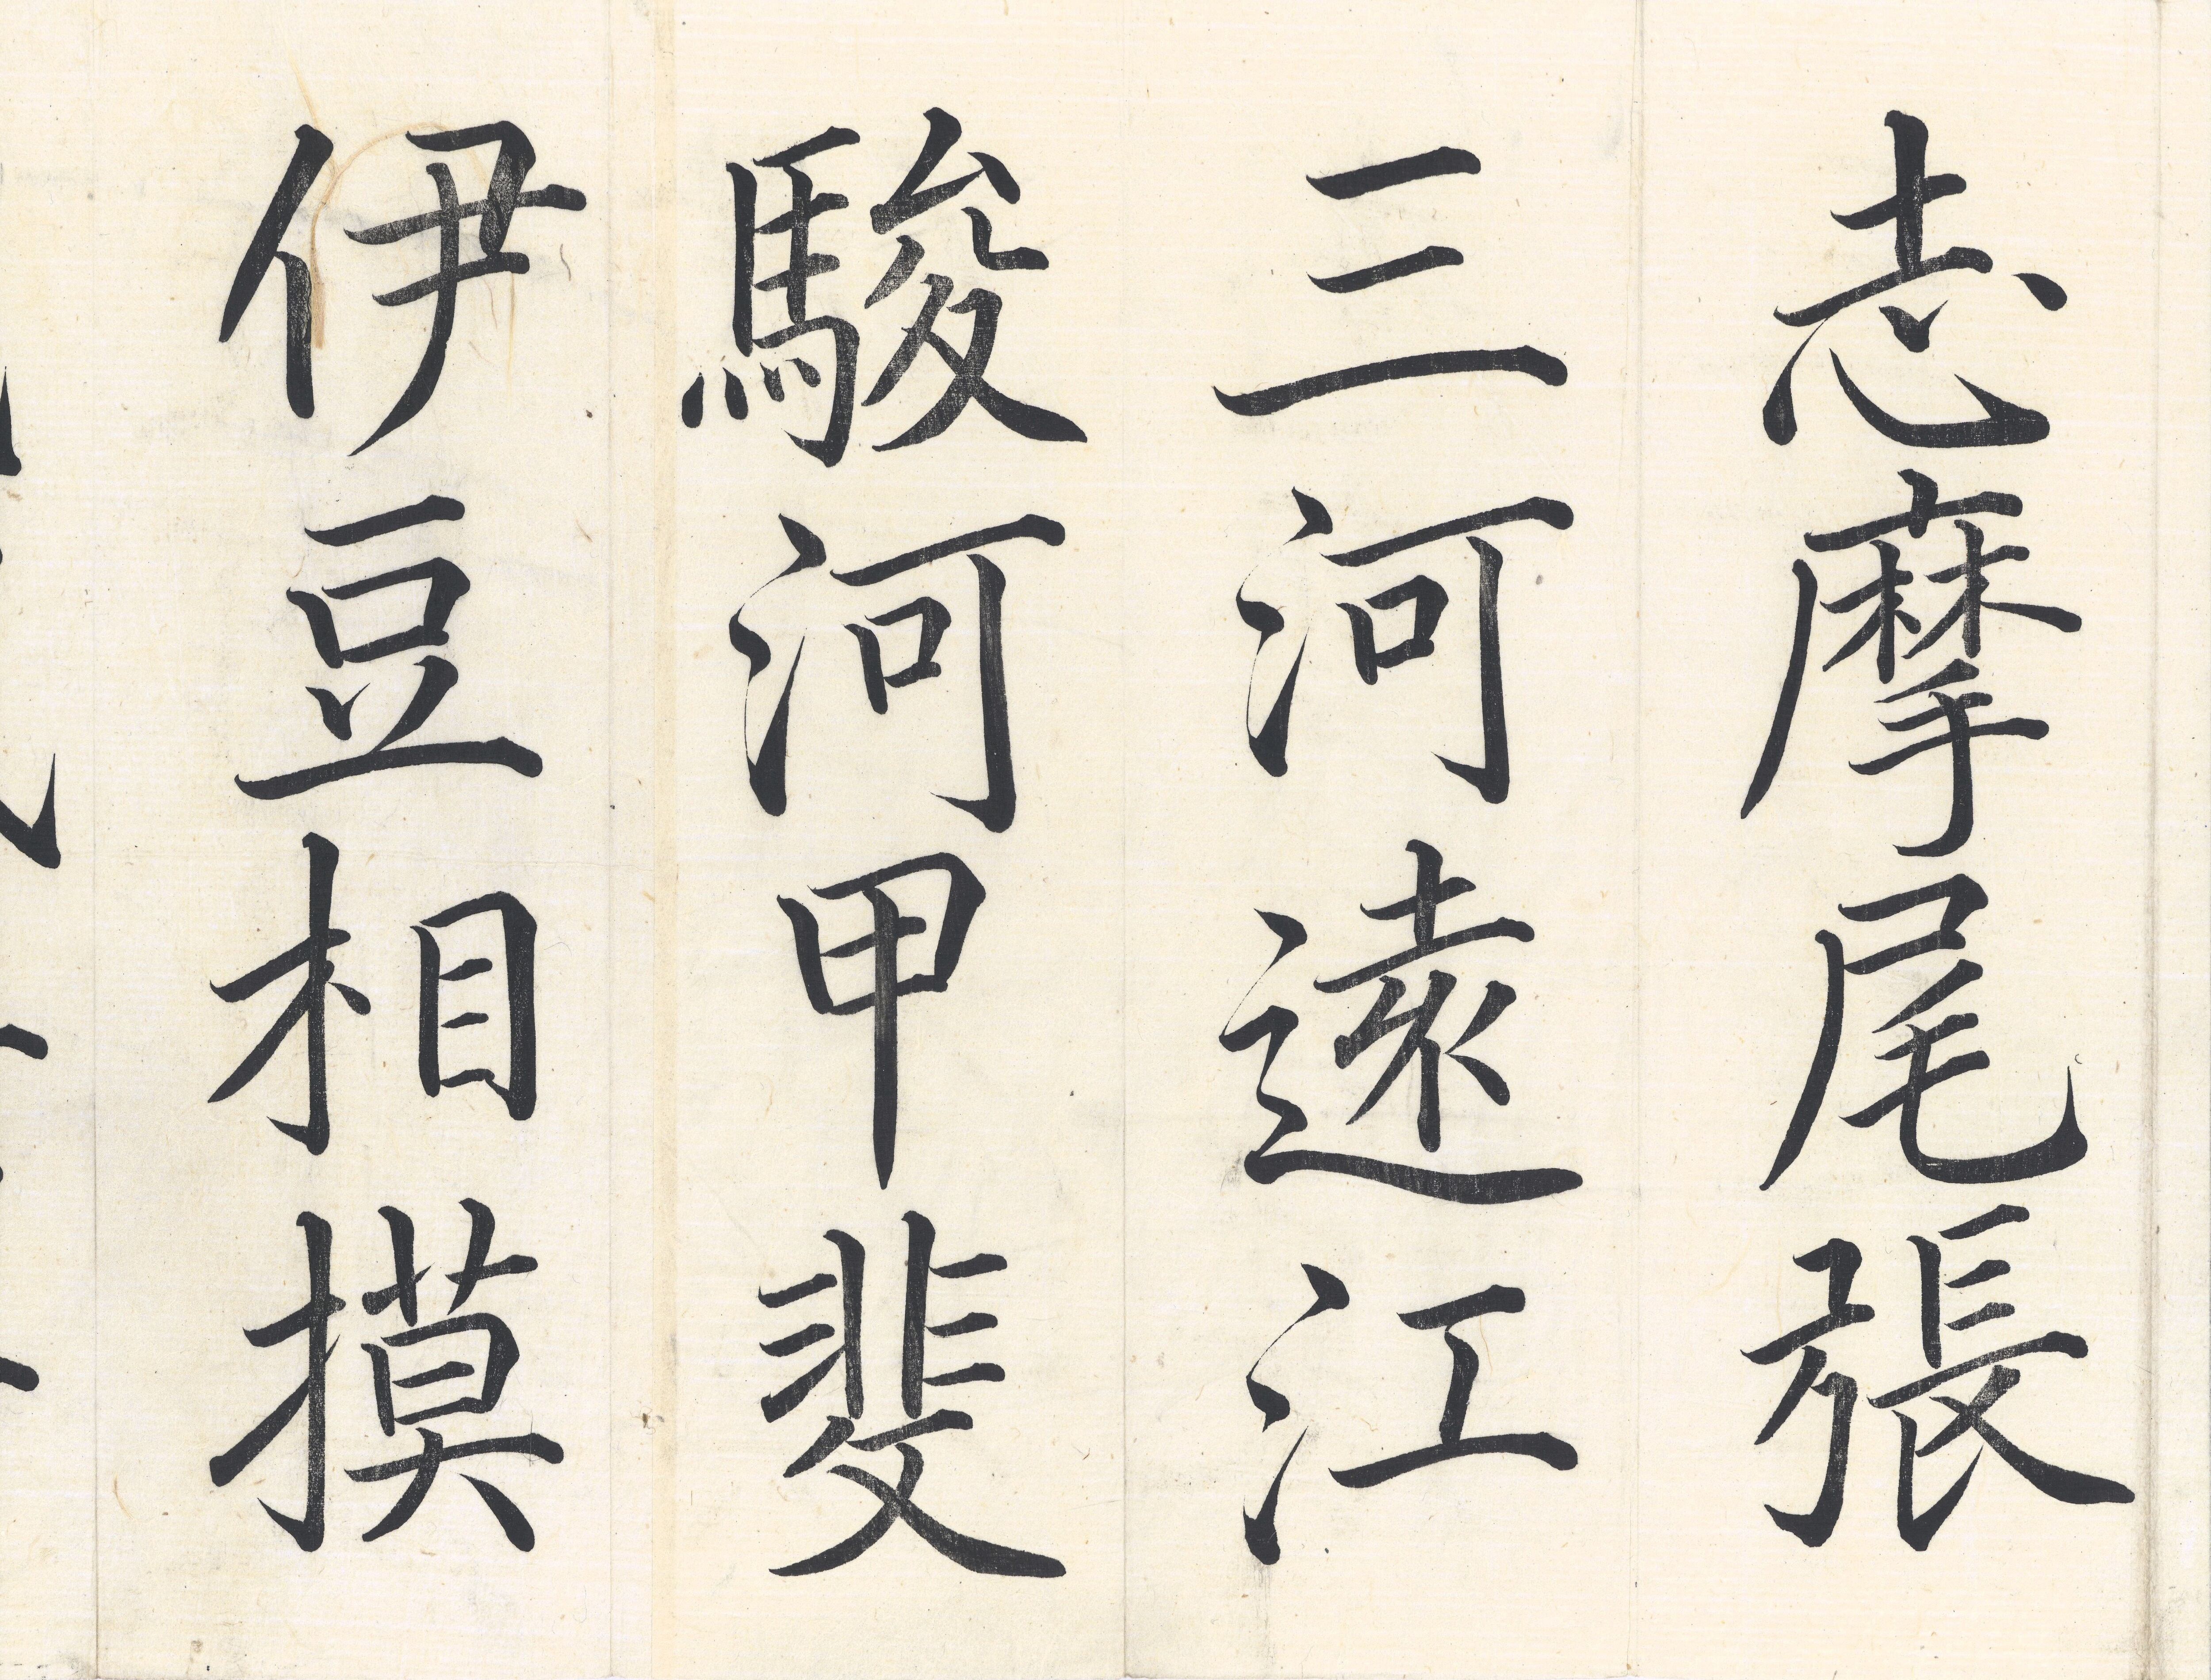 志摩尾張
三河遠江
駿河甲斐
伊豆相摸